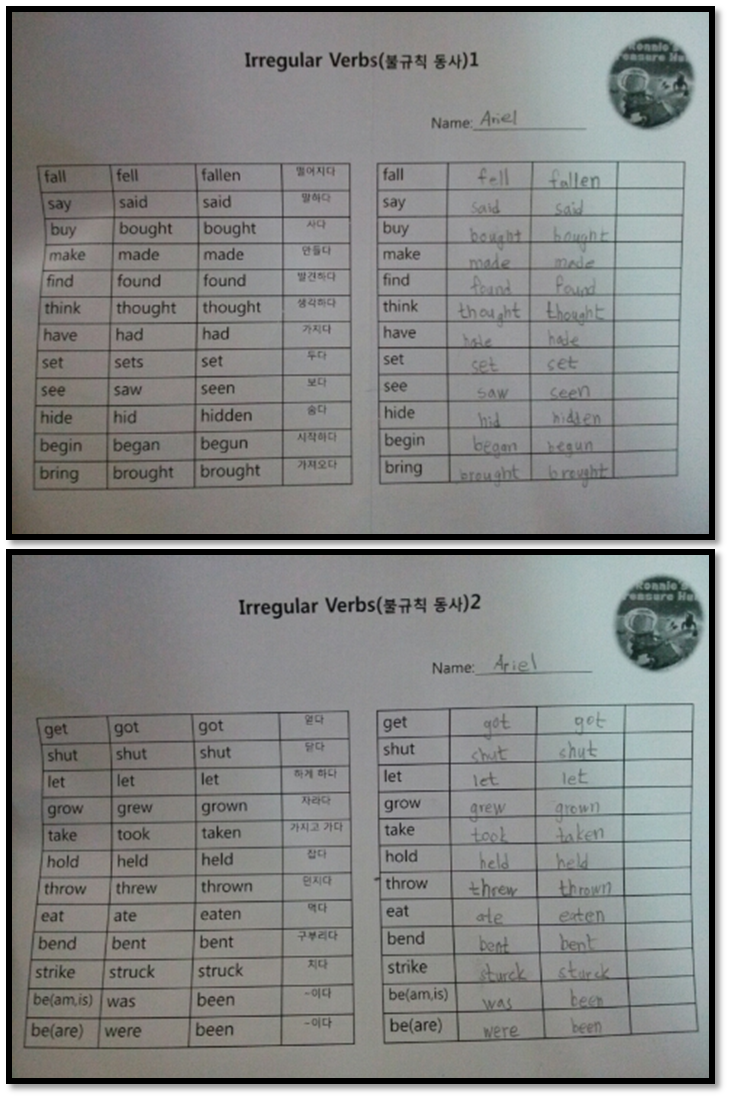 Irregular Verbs(불규칙 동사)1
Name: Ariel
fall fell fallen 떨어지다
say said said 말하다
buy bought bought 사다
make made made 만들다
find found found 발견하다
think thought thought 생각하다
have had had 가지다
set sets set 두다
see saw seen 보다
hide hid hidden 숨다
begin began begun 시작하다
bring brought brought 가져오다
fall fell fallen
say said said
buy bought bought
make made made
find found found
think thought thought
have hade hade
set set set
see saw seen
hide hid hidden
begin began begun
bring brought brought
Irregular Verbs(불규칙 동사)2
Name: Ariel
get got got 얻다
shut shut shut 닫다
let let let 하게 하다
grow grew grown 자라다
take took taken 가지고 가다
hold held held 잡다
throw threw thrown 던지다
eat ate eaten 먹다
bend bent bent 구부리다
strike struck struck 치다
be(am,is) was been ~이다
be(are) were been ~이다
get got got
shut shut shut
let let let
grow grew grown
take took taken
hold held held
throw threw thrown
eat ate eaten
bend bent bent
strike sturck sturck
be(am,is) was been
be(are) were been